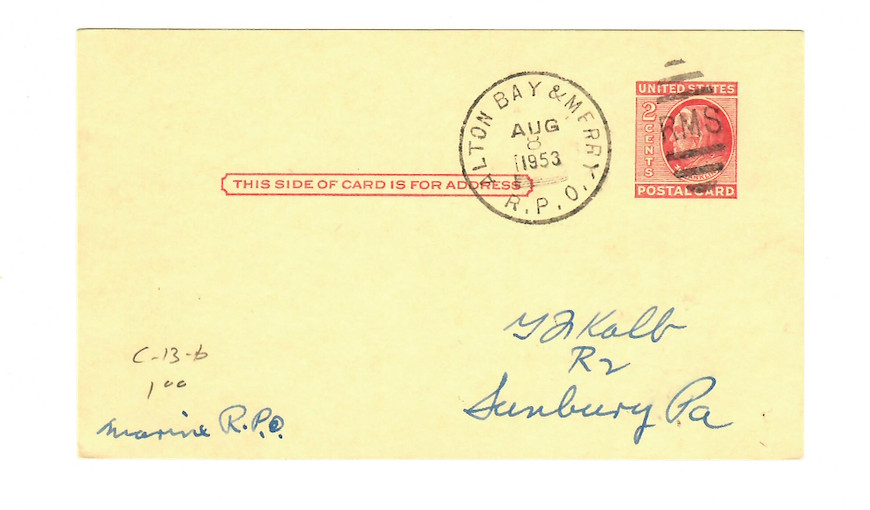 ALTON BAY & MERRY. R.P.O.
AUG
8
1953
UNITED STATES
2 CENTS
RMS
FRANKLIN
POSTAL CARD
THIS SIDE OF CARD IS FOR ADDRESS
R2
Sunbury Pa
C-13-b
1 00
Marine R.P.O.